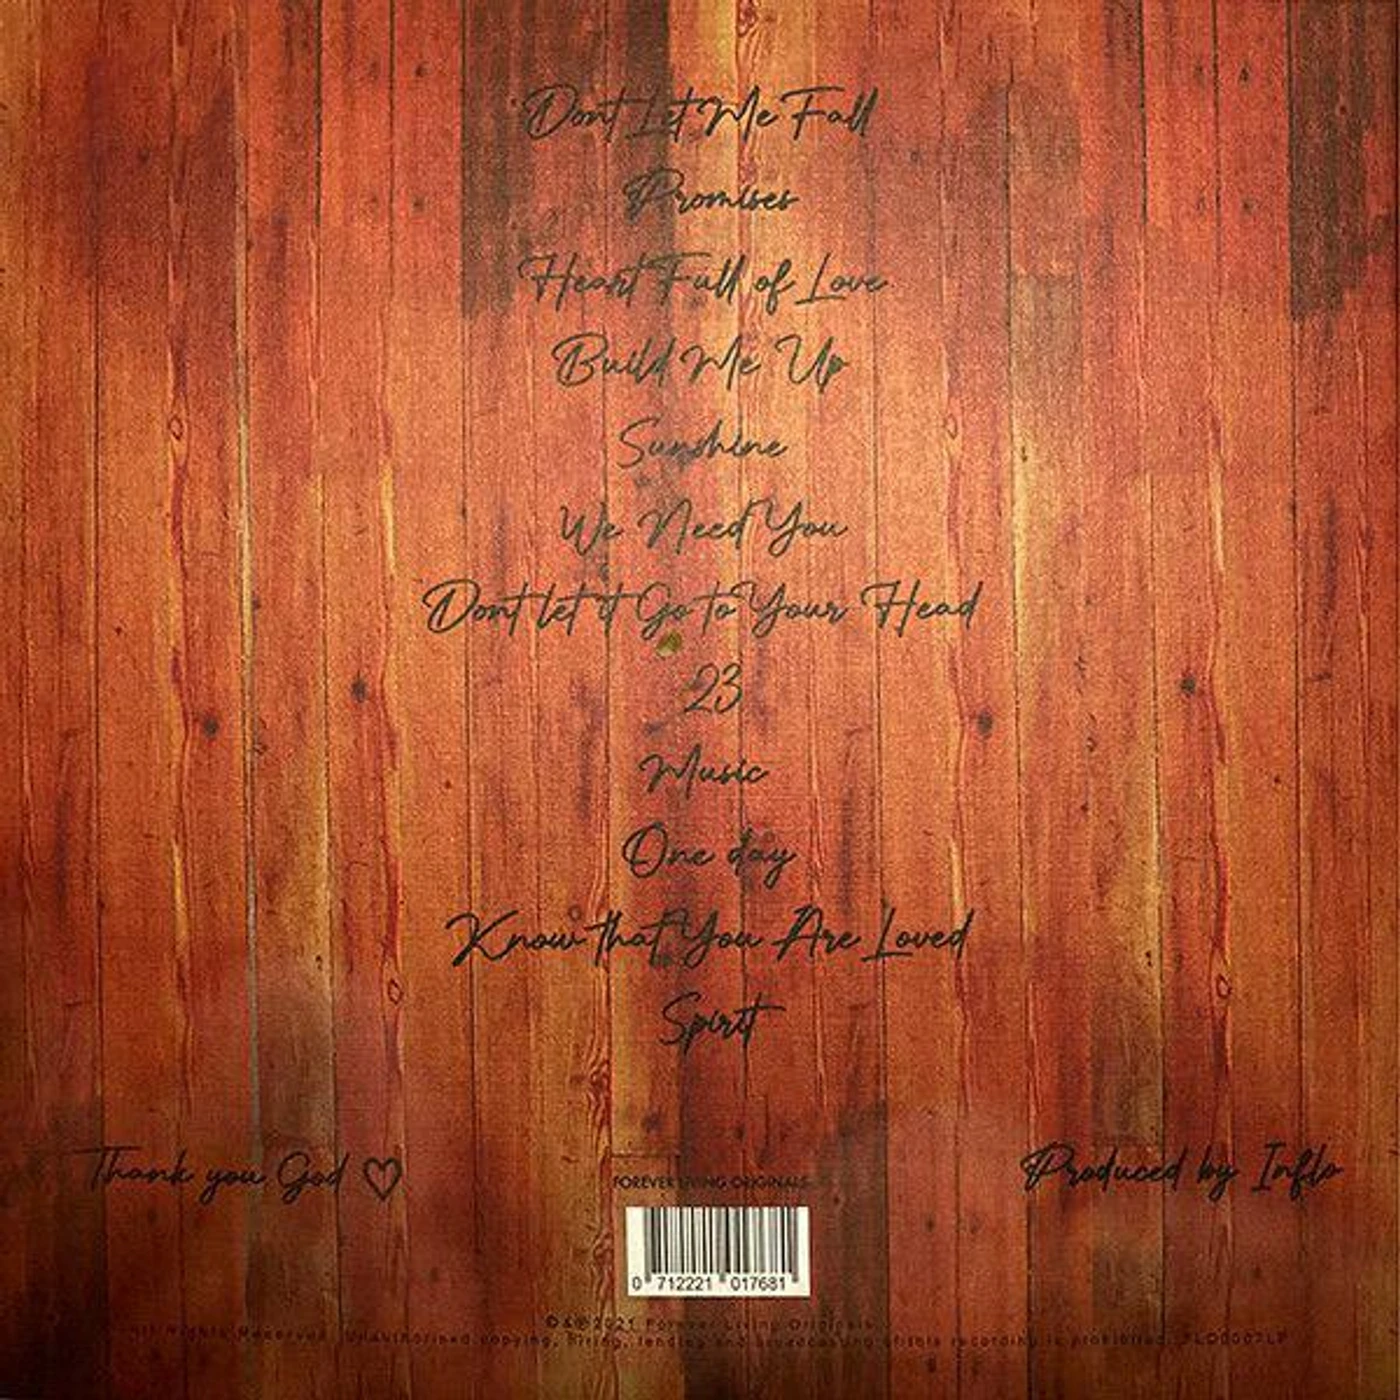 Dont Let Me Fall
Promises
Heart Full of Love
Build Me Up
Sunshine
We Need You
Dont let it Go to Your Head
23
Music
One day
Know that You Are Loved
Spirit
Thank you God ♡
Produced by Inflo
FOREVER LIVING ORIGINALS
0 712221 017681
©&℗2021 Forever Living Originals
All Rights Reserved. Unauthorised copying, hiring, lending and broadcasting of this recording is prohibited. FLO0007LP